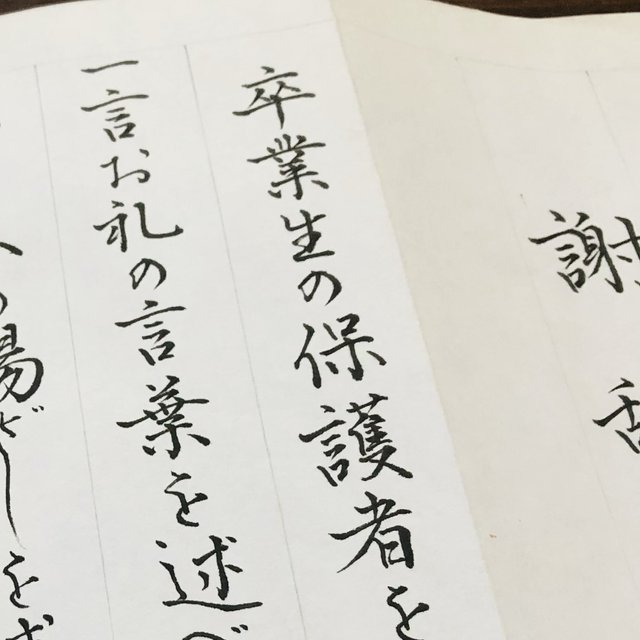 謝
卒業生の保護者を
一言お礼の言葉を述べ
の場 しを